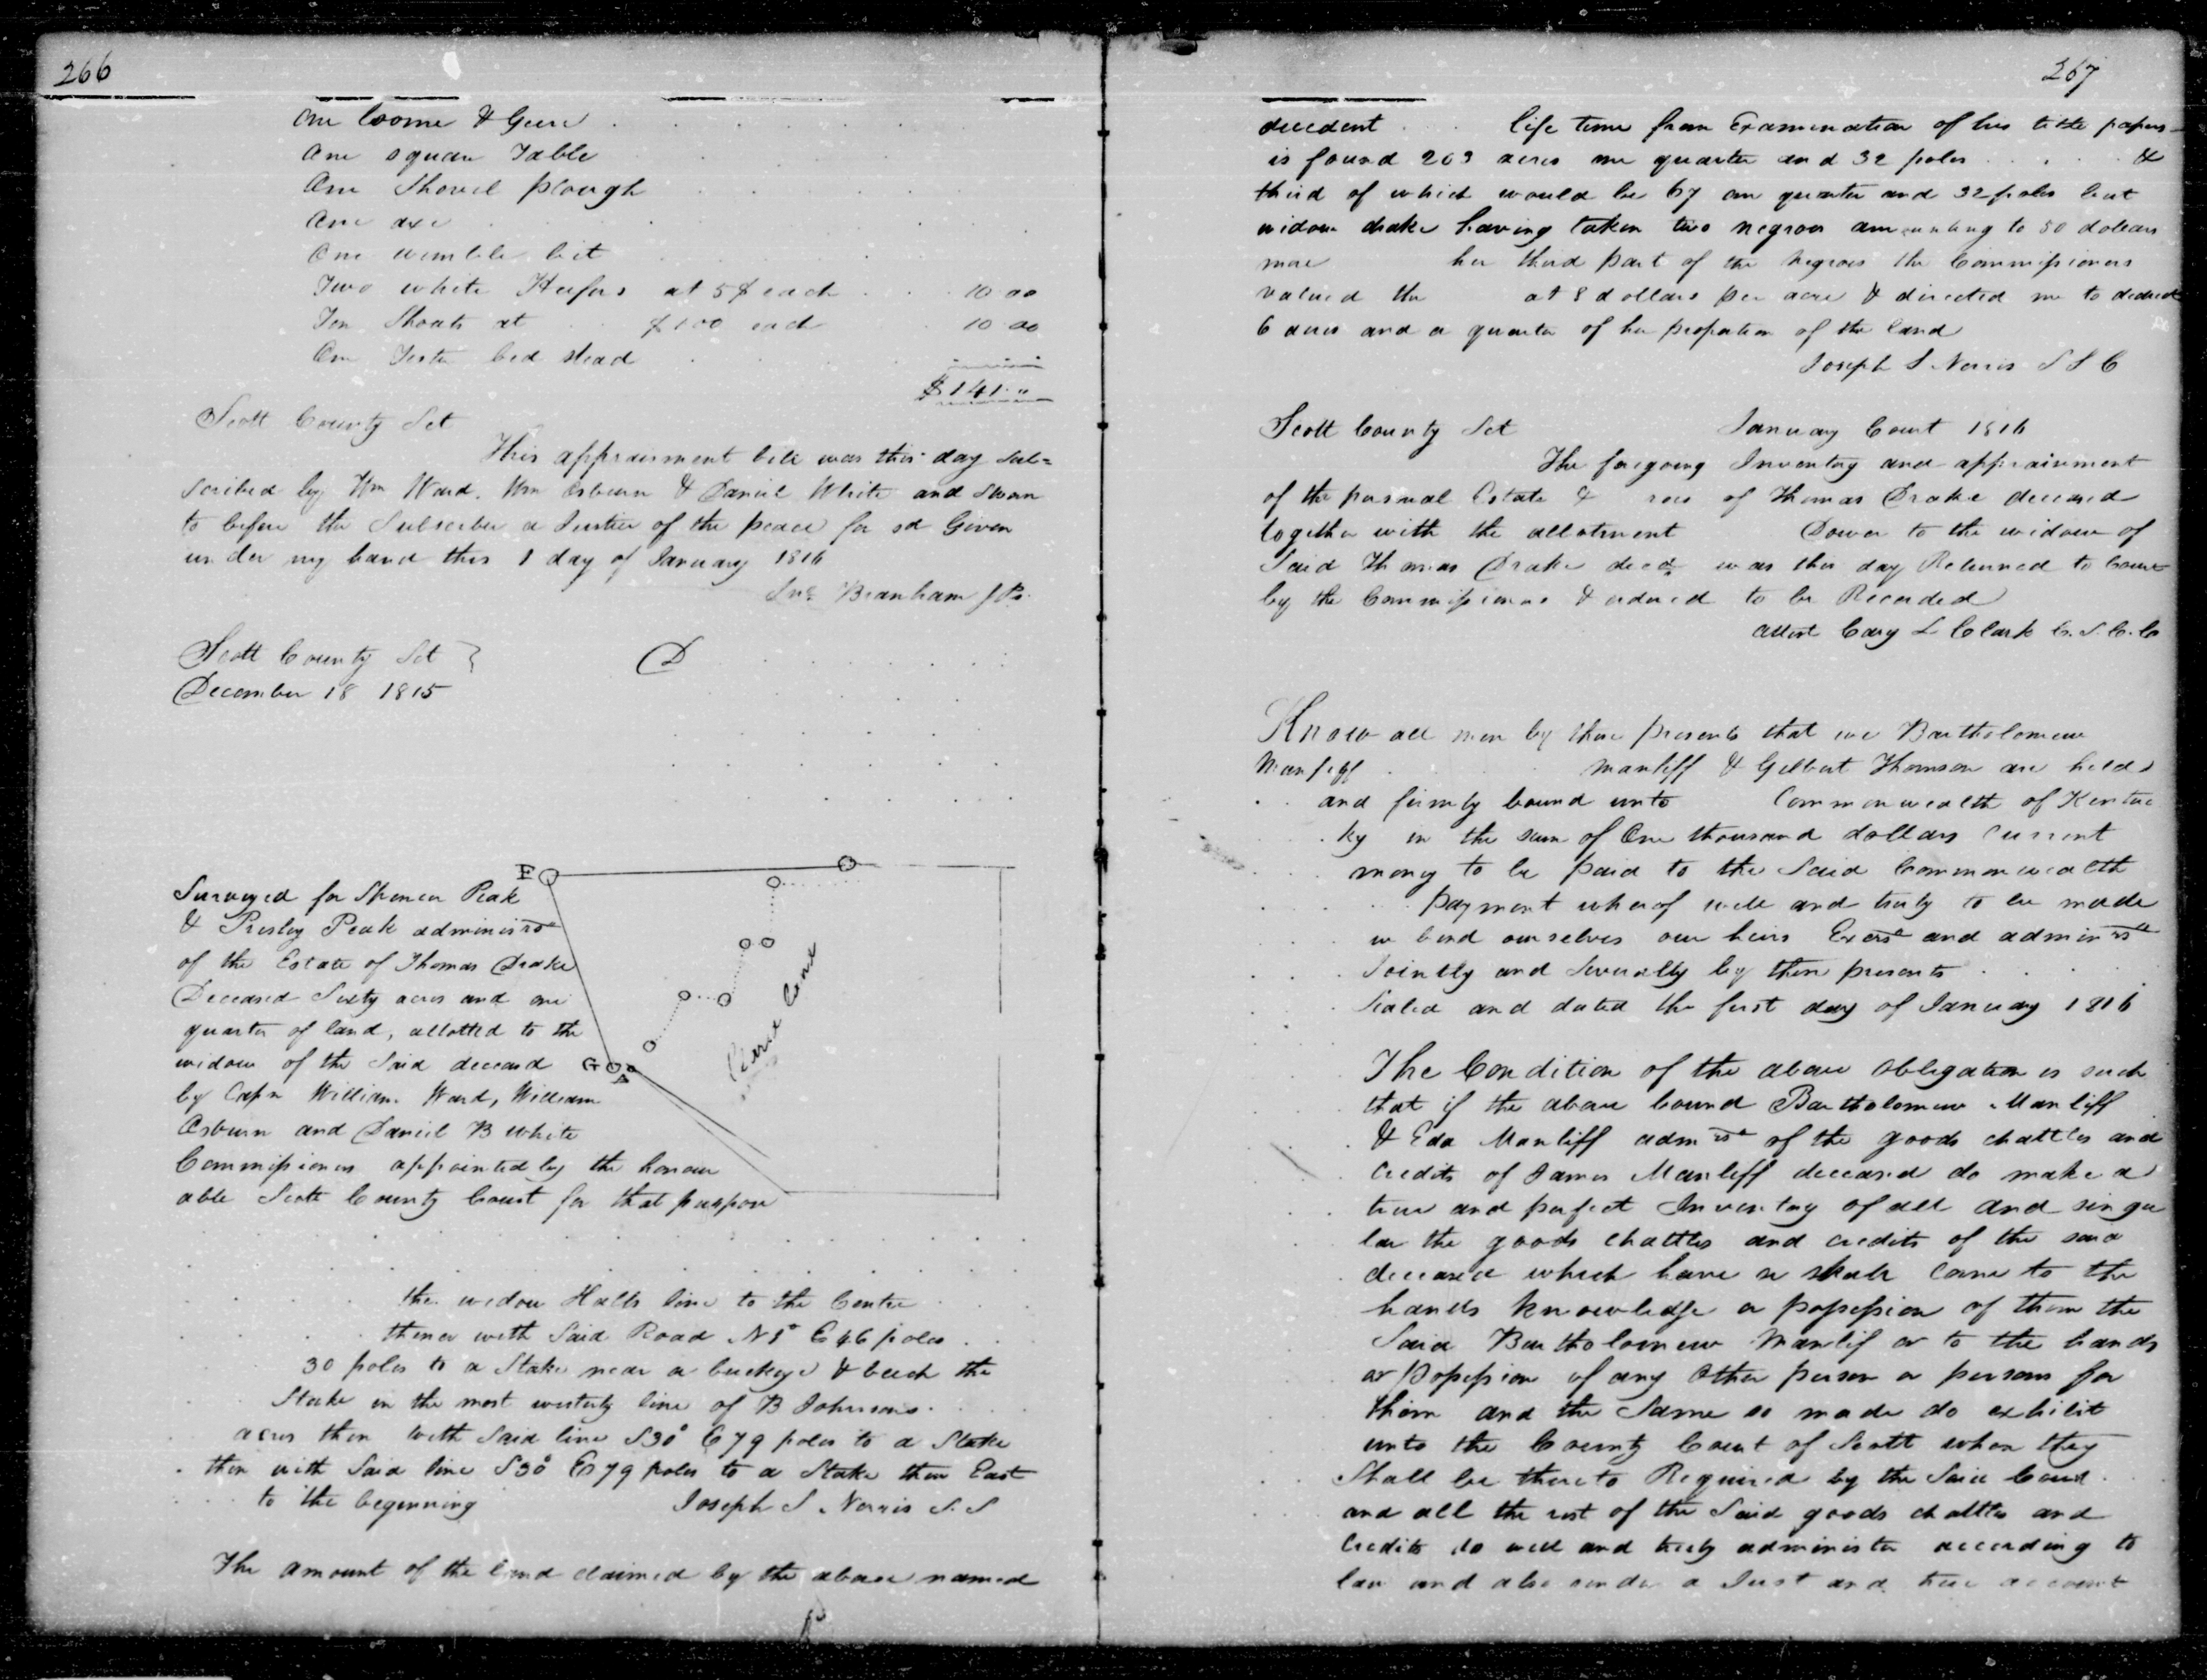 266
One Loome & Geers
One square Table
One Shovel plough
One axe
One wimble bit
Two white Heifers at 5$ each 10 00
Ten Shoats at $1 00 each 10 00
One Tester bed stead
$141 "
Scott County Sct
This appraisment bill was this day sub=
scribed by Wm Ward. Wm Osburn & Daniel White and sworn
to before the Subscriber a Justice of the peace for sd Given
under my hand this 1 day of January 1816
Jno Branham J Ps.
Scott County Sct }
D
December 18 1815
F
Surveyed for Spencer Peak
& Presley Peak administrs
of the Estate of Thomas Drake
Deceased Sixty acres and one
quarter of land, allotted to the
widow of the Said deceased
G A
by Capn William Ward, William
Osburn and Daniel B White
Commissioners appointed by the honour
able Scott County Court for that purpose
the widow Halls line to the Centre
thence with Said Road N 8° E 46 poles
30 poles to a Stake near a buckeye & beech the
Stake in the most westerly line of B Johnsons
acres then with Said line S30° E 79 poles to a Stake
then with Said line S30° E 79 poles to a Stake then East
to the beginning Joseph S. Norris S. S
The amount of the land claimed by the above named
267
decedent life time from Examination of his title papers
is found 203 acres one quarter and 32 poles &
third of which would be 67 one quarter and 32 poles but
widow drake having taken two negroes amounting to 50 dollars
more her third part of the Negroes the Commissioners
valued the at 8 dollars per acre & directed me to deduct
6 acres and a quarter of her proportion of the land
Joseph S Norris S S C
Scott County Sct January Court 1816
The foregoing Inventory and appraisment
of the personal Estate & of Thomas Drake deceased
together with the allotment Dower to the widow of
Said Thomas Drake decd was this day Returned to Court
by the Commissioners & ordered to be Recorded
attest Cary L Clark C. S. C. C
Know all men by these presents that we Bartholomew
Manliff & Gilbert Thomson are held
and firmly bound unto Commonwealth of Kentuc
ky in the sum of One thousand dollars current
money to be paid to the Said Commonwealth
payment whereof well and truly to be made
we bind ourselves our heirs Exers and adminrs
Jointly and Severally by these presents
Sealed and dated the first day of January 1816
The Condition of the above Obligation is such
that if the above bound Bartholomew Manliff
& Eda Manliff admrs of the goods chattles and
Credits of James Manliff deceased do make a
true and perfect Inventory of all and singu
lar the goods Chattles and credits of the said
deceased which have or shall Come to the
hands knowledge or possession of them the
Said Bartholomew Manlif or to the hands
or Possession of any Other person or persons for
them and the Same so made do exhibit
unto the County Court of Scott when they
Shall be thereto Required by the Said Court
and all the rest of the Said goods chattles and
Credits do well and truly administer according to
law and also render a Just and true account